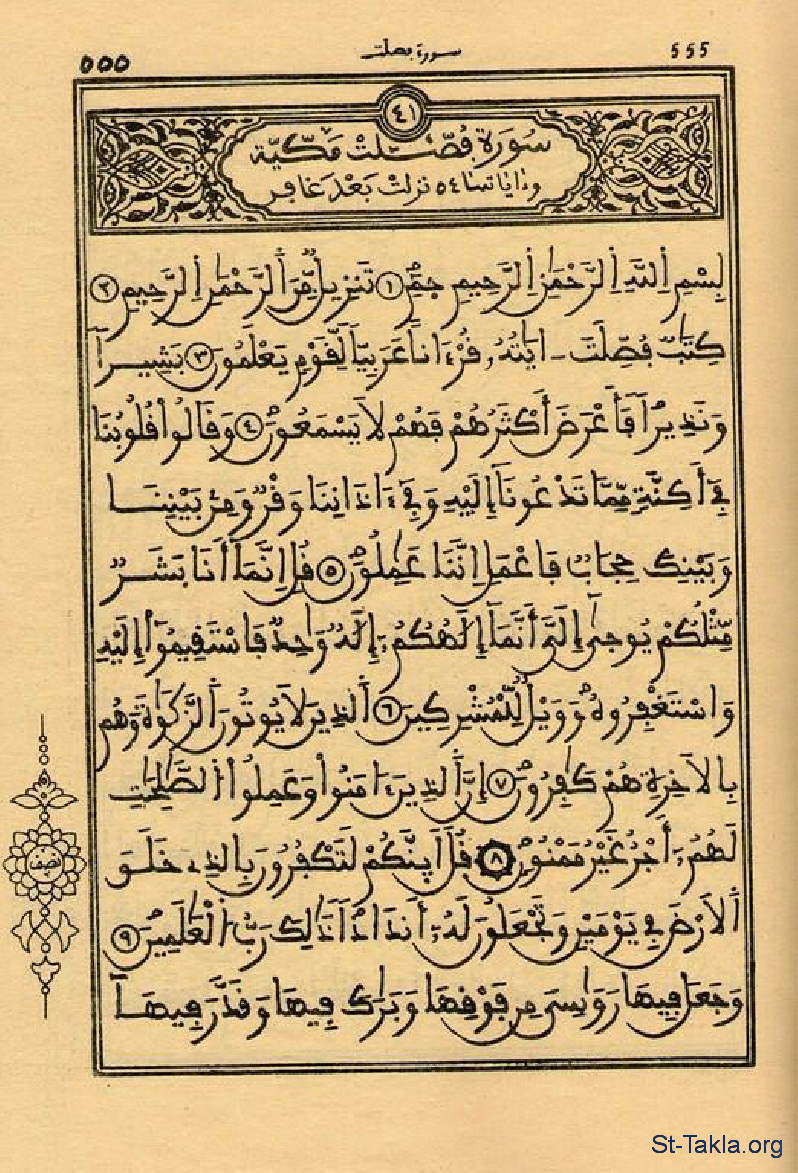 555 سورة فصلت ٥٥٥
٤١
سُورَةُ فُصِّلَتْ مَكِّيَّة
وءاياتها ٥٤ نزلت بَعْدَ غافِر
بِسْمِ اِ۬للَّهِ اِ۬لرَّحْمَٰنِ اِ۬لرَّحِيمِ حَمِٓ ١ تَنزِيلٞ مِّنَ اَ۬لرَّحْمَٰنِ اِ۬لرَّحِيمِ ٢
كِتَٰبٞ فُصِّلَتَ ـ ايَٰتُهُۥ قُرْءَاناً عَرَبِيّاٗ لِّقَوْمٖ يَعْلَمُونَ ٣ بَشِيراٗ
وَنَذِيراٗ فَأَعْرَضَ أَكْثَرُهُمْ فَهُمْ لَا يَسْمَعُونَ ٤ وَقَالُواْ قُلُوبُنَا
فِےٓ أَكِنَّةٖ مِّمَّا تَدْعُونَآ إِلَيْهِ وَفِےٓ ءَاذَانِنَا وَقْرٞ وَمِنۢ بَيْنِنَا
وَبَيْنِكَ حِجَابٞ فَاعْمَلِ اِنَّنَا عَٰمِلُونَ ٥ قُلِ اِنَّمَآ أَنَا بَشَرٞ
مِّثْلُكُمْ يُوحَىٰٓ إِلَىَّ أَنَّمَآ إِلَٰهُكُمُۥٓ إِلَٰهٞ وَٰحِدٞ فَاسْتَقِيمُوٓاْ إِلَيْهِ
وَاسْتَغْفِرُوهُ وَوَيْلٞ لِّلْمُشْرِكِينَ ٦ اَ۬لذِينَ لَا يُوتُونَ اَ۬لزَّكَوٰةَ وَهُم
بِالَاخِرَةِ هُمْ كَٰفِرُونَ ٧ إِنَّ اَ۬لذِينَ ءَامَنُواْ وَعَمِلُواْ اُ۬لصَّٰلِحَٰتِ
لَهُمُۥٓ أَجْرٌ غَيْرُ مَمْنُونٖ ٨ قُلَ اَئِنَّكُمْ لَتَكْفُرُونَ بِالذِے خَلَقَ
اَ۬لَارْضَ فِے يَوْمَيْنِ وَتَجْعَلُونَ لَهُۥٓ أَندَاداٗ ذَٰلِكَ رَبُّ اُ۬لْعَٰلَمِينَ ٩
وَجَعَلَ فِيهَا رَوَٰسِىَ مِن فَوْقِهَا وَبَٰرَكَ فِيهَا وَقَدَّرَ فِيهَآ
نصف
St-Takla.org